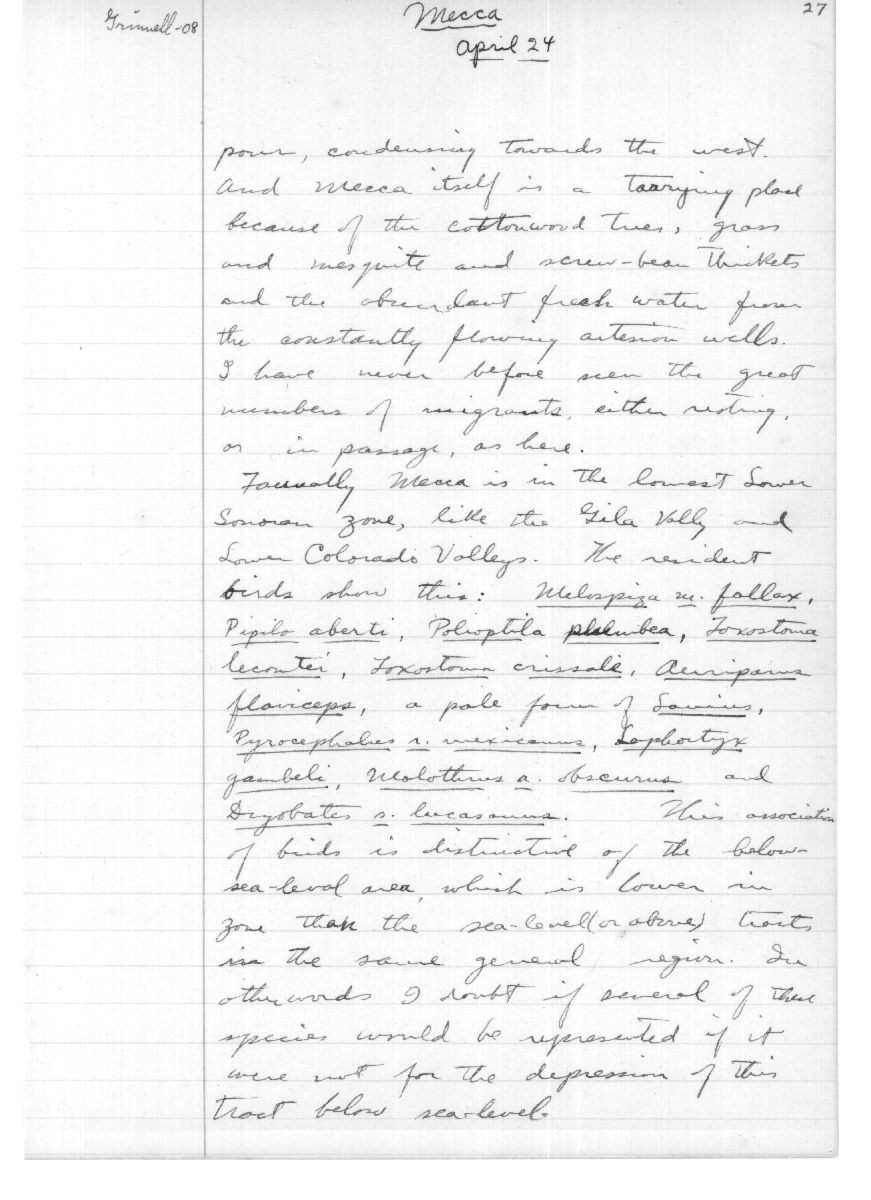 Grinnell-08
Mecca
27
April 24
pour, condensing towards the west.
And Mecca itself is a tarrying place
because of the cottonwood trees, grass
and mesquite and screw-bean thickets
and the abundant fresh water from
the constantly flowing artesian wells.
I have never before seen the great
numbers of migrants, either resting,
or in passage, as here.
Faunally Mecca is in the lowest Lower
Sonoran zone, like the Gila Vally and
Lower Colorado Valleys. The resident
birds show this: Melospiza m. fallax,
Pipilo aberti, Polioptila plumbea, Toxostoma
lecontei, Toxostoma crissale, Auriparus
flaviceps, a pale form of Lanius,
Pyrocephalus r. mexicanus, Lophortyx
gambeli, Molothrus a. obscurus and
Dryobates s. lucasanus. This association
of birds is distinctive of the below-
sea-level area, which is lower in
zone than the sea-level (or above) tracts
in the same general region. In
other words I doubt if several of these
species would be represented if it
were not for the depression of this
tract below sea-level.